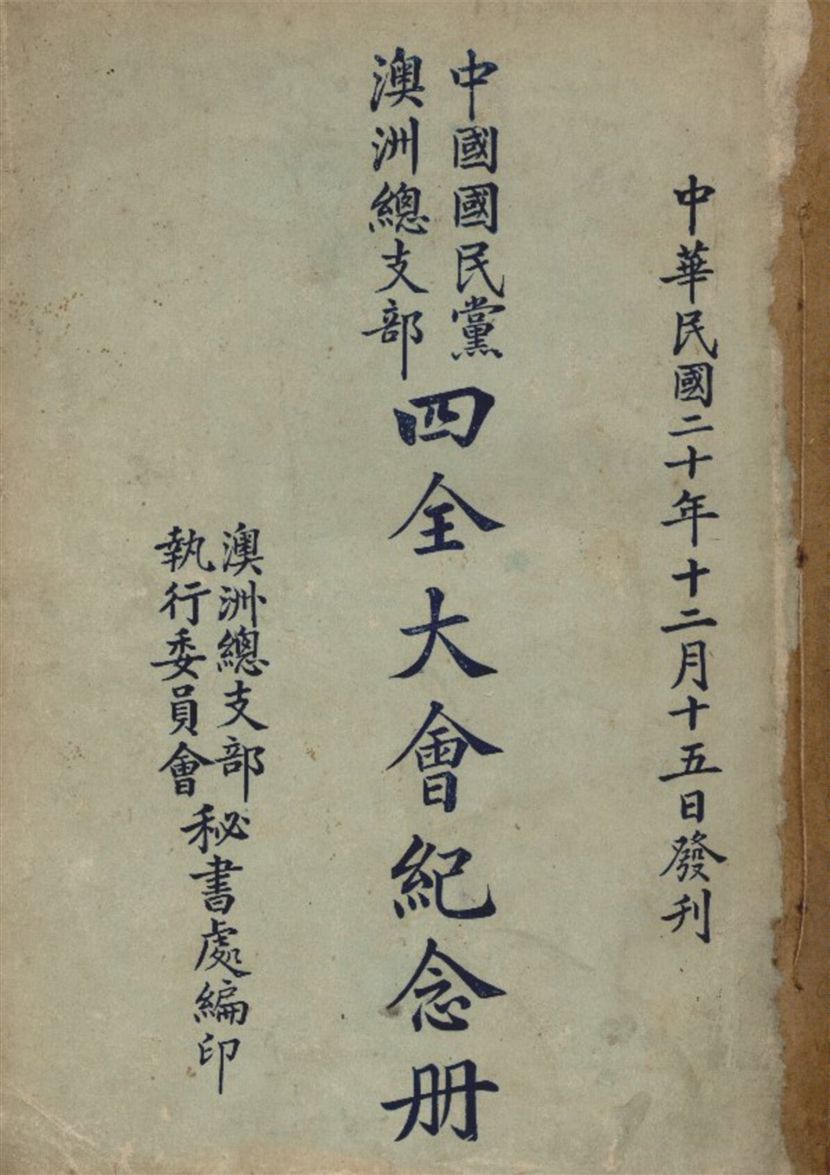 中華民國二十年十二月十五日發刊
中國國民黨
澳洲總支部
四全大會紀念册
澳洲總支部
執行委員會
秘書處編印